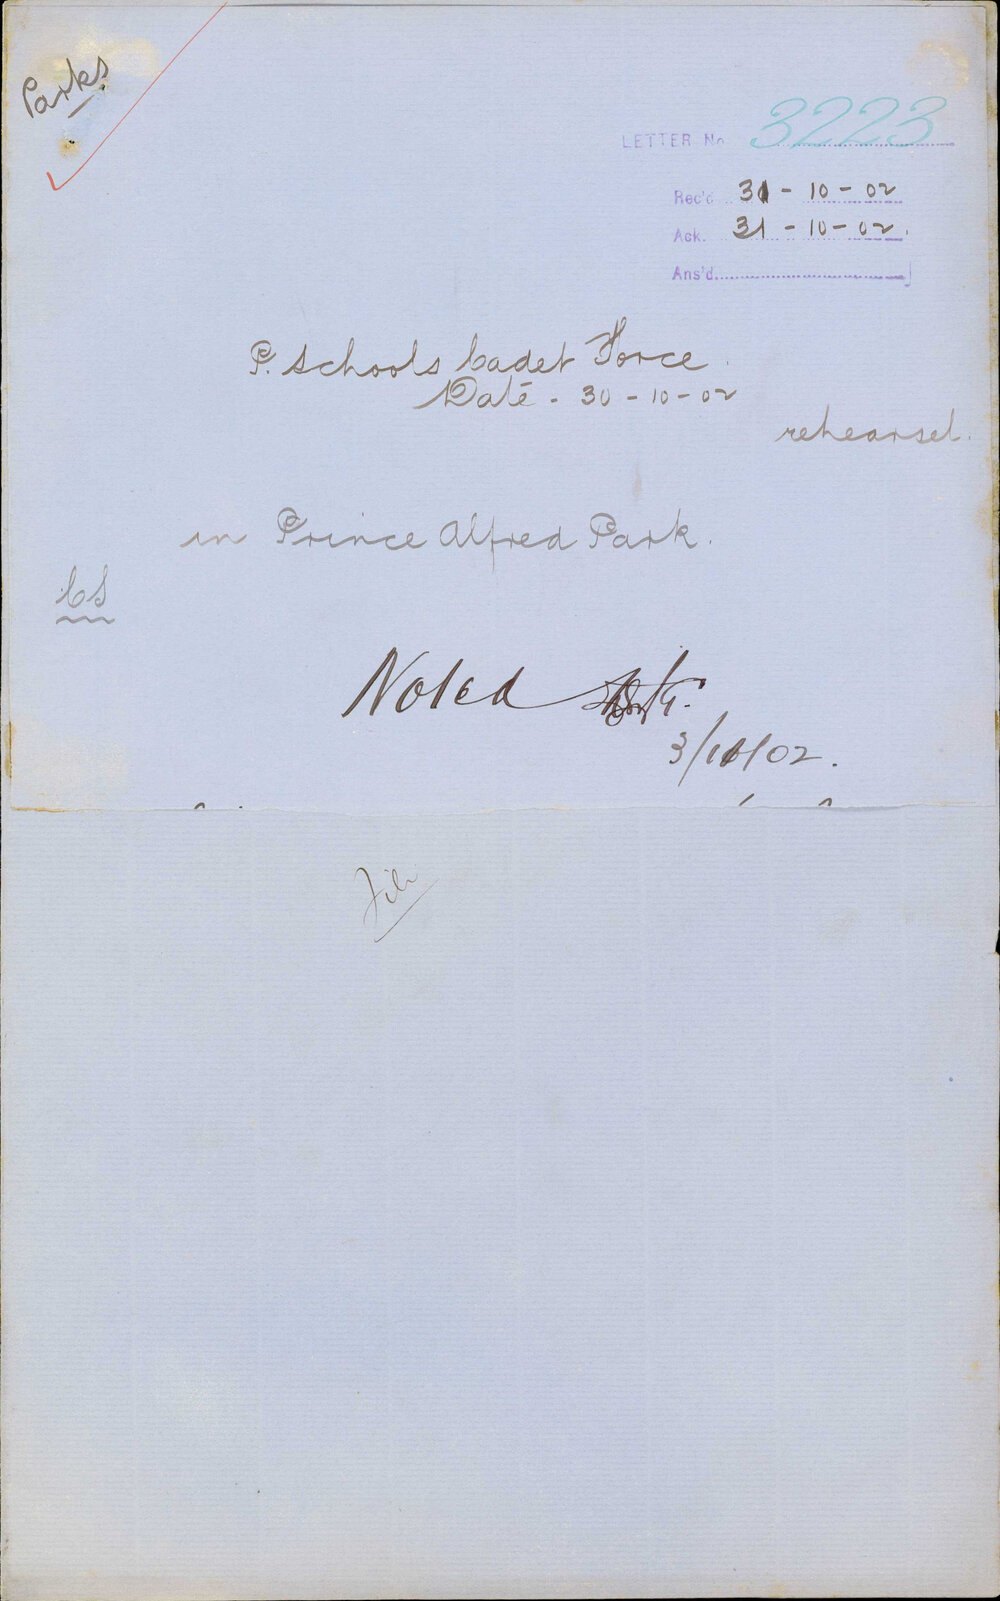 Parks
LETTER No 3223
Rec'd 31 - 10 - 02
Ack. 31 - 10 - 02.
Ans'd
P. Schools Cadet Force
Date - 30 - 10 - 02
rehearsel.
in Prince Alfred Park.
CS
Noted
3/11/02.
File